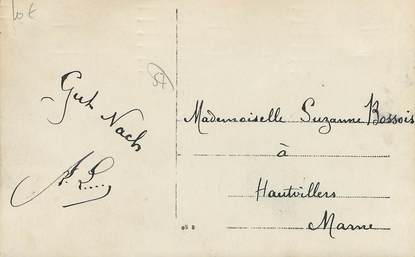 10 €
57
Gut Nach
A. L....
Mademoiselle Suzanne Bossois
à
Hautvillers
Marne